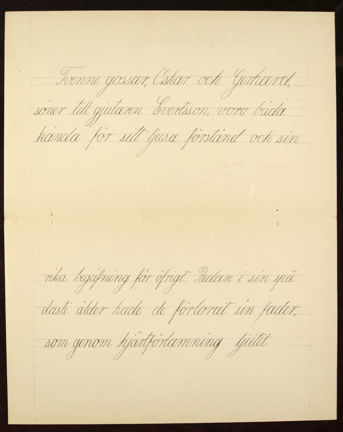 Tvenne gossar, Oskar och Gerhard,
söner till gjutaren Evertsson, voro båda
kända för sitt ljusa förstånd och sin
rika begåfning för öfrigt. Redan i sin spä
dasta ålder hade de förlorat sin fader,
som genom hjärtförlamning ljutit